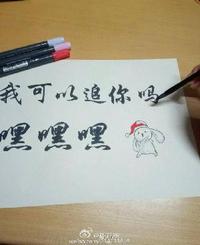 我可以追你吗
嘿嘿嘿